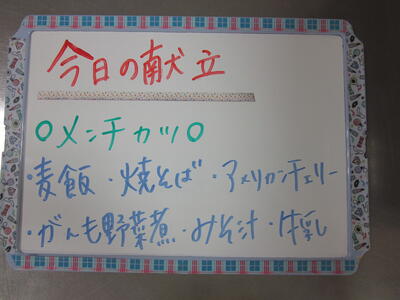 今日の献立
○メンチカツ○
・麦飯・焼そば・アメリカンチェリー
・がんも野菜煮・みそ汁・牛乳